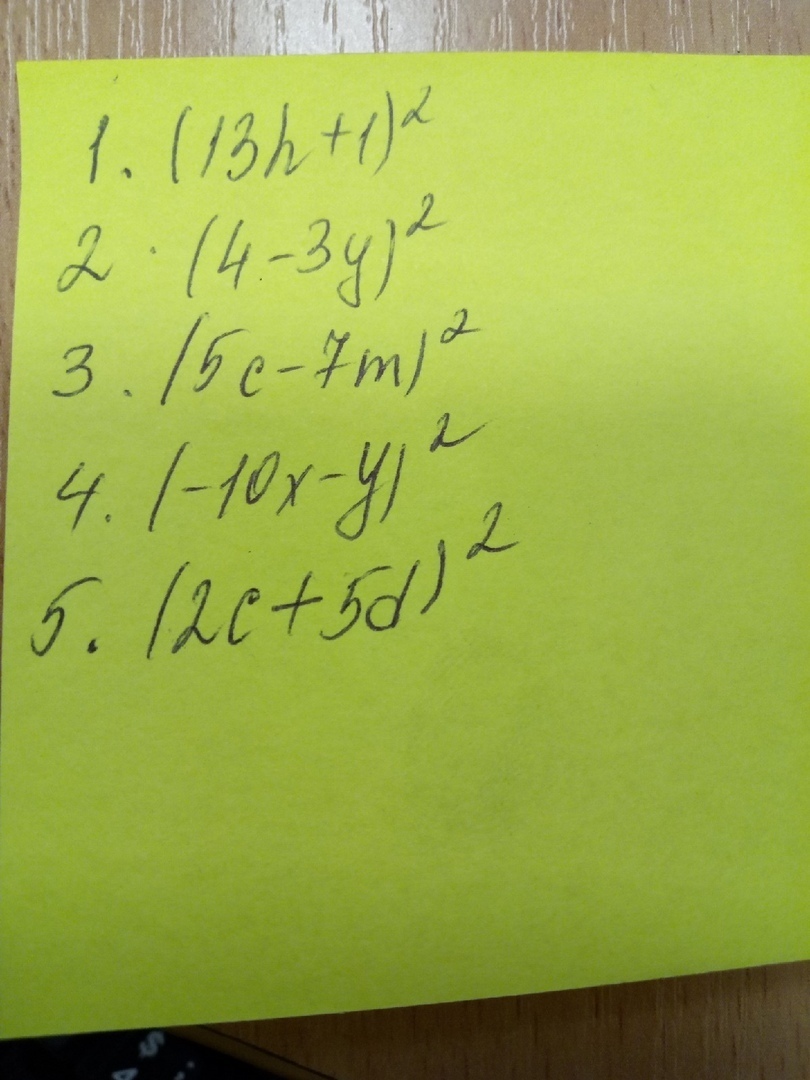 1. (13h+1)²
2. (4-3y)²
3. (5c-7m)²
4. (-10x-y)²
5. (2c+5d)²